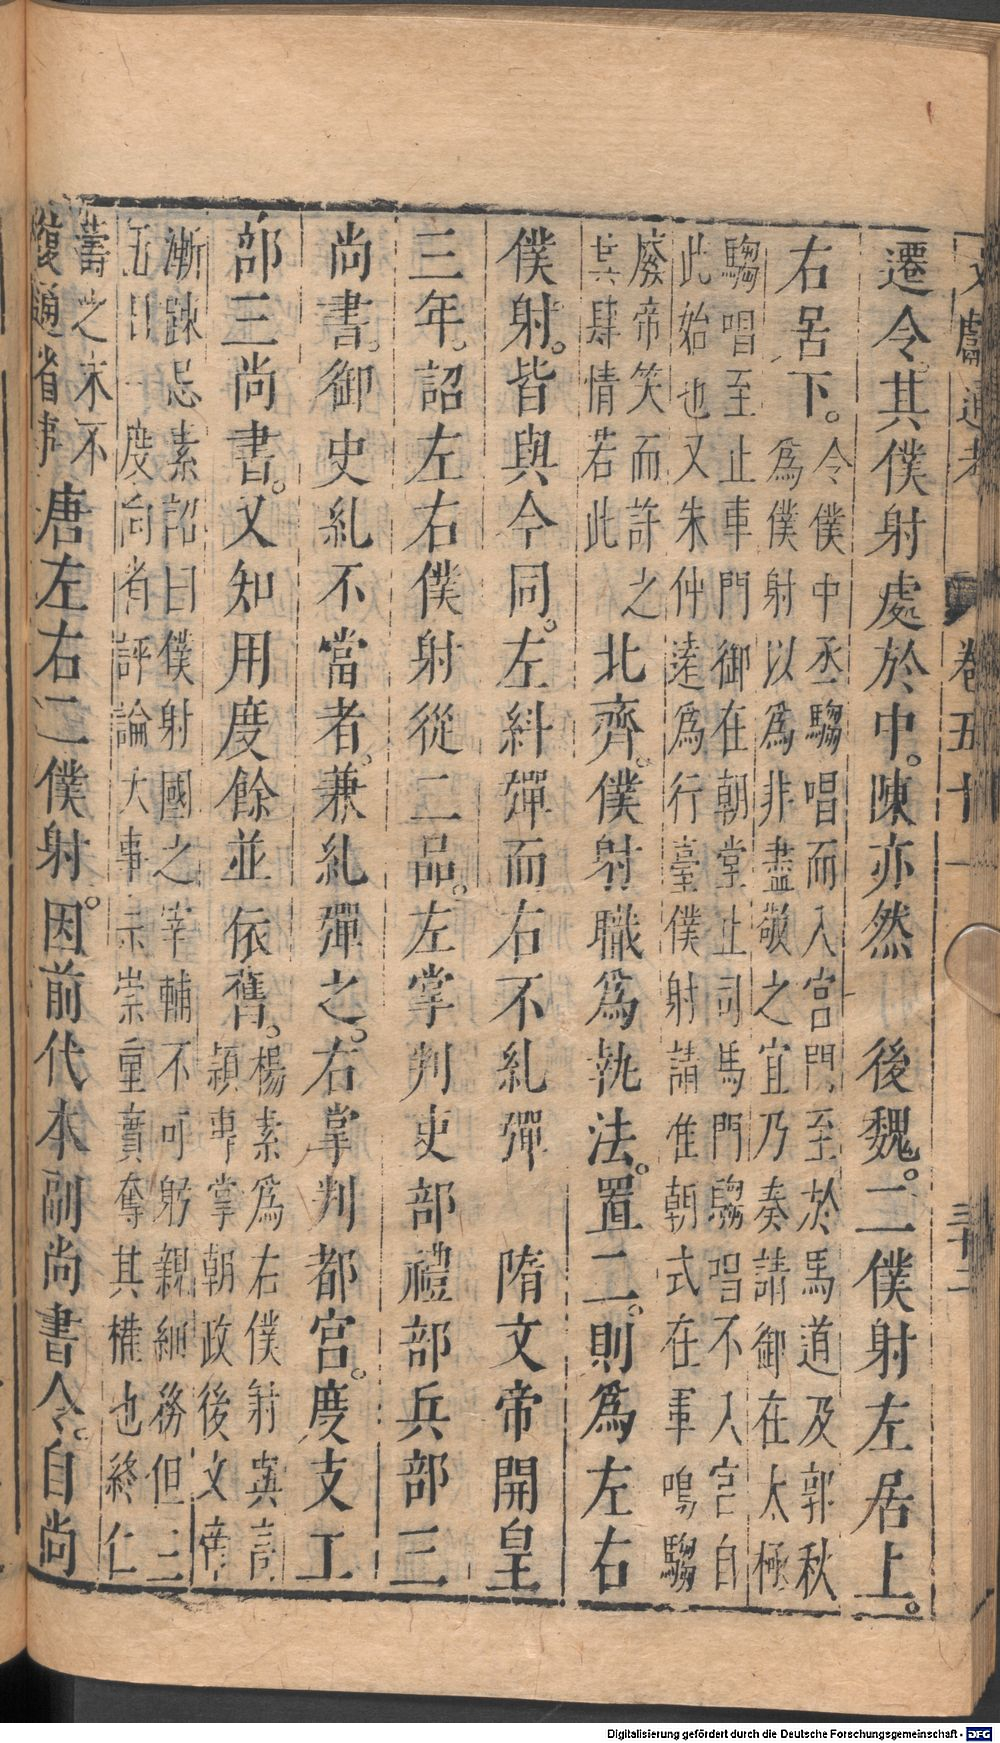 文獻通考 卷五十一 三十二
遷令。其僕射處於中。陳亦然 後魏。二僕射左居上。
右居下。令僕中丞騶唱而入宮門至於馬道及郭秋
為僕射以為非盡敬之宜乃奏請御在太極
騶唱至止車門御在朝堂止司馬門騶唱不入宮自
此始也又朱仲遠為行臺僕射請准朝式在軍鳴騶
廢帝笑而許之
其肆情若此
北齊。僕射職爲執法。置二。則爲左右
僕射。皆與令同。左糾彈而右不糺彈 隋文帝開皇
三年。詔左右僕射從二品。左掌判吏部禮部兵部三
尚書。御史糺不當者。兼糺彈之。右掌判都官。度支工
部三尚書。又知用度餘並依舊。楊素為右僕射與高
熲專掌朝政後文帝
漸踈忌素詔曰僕射國之宰輔不可躬親細務但三
五日一度向省評論大事示崇重實奪其權也終仁
壽之末不
復通省事
唐左右二僕射。因前代本副尚書令。自尚
Digitalisierung gefördert durch die Deutsche Forschungsgemeinschaft - DFG